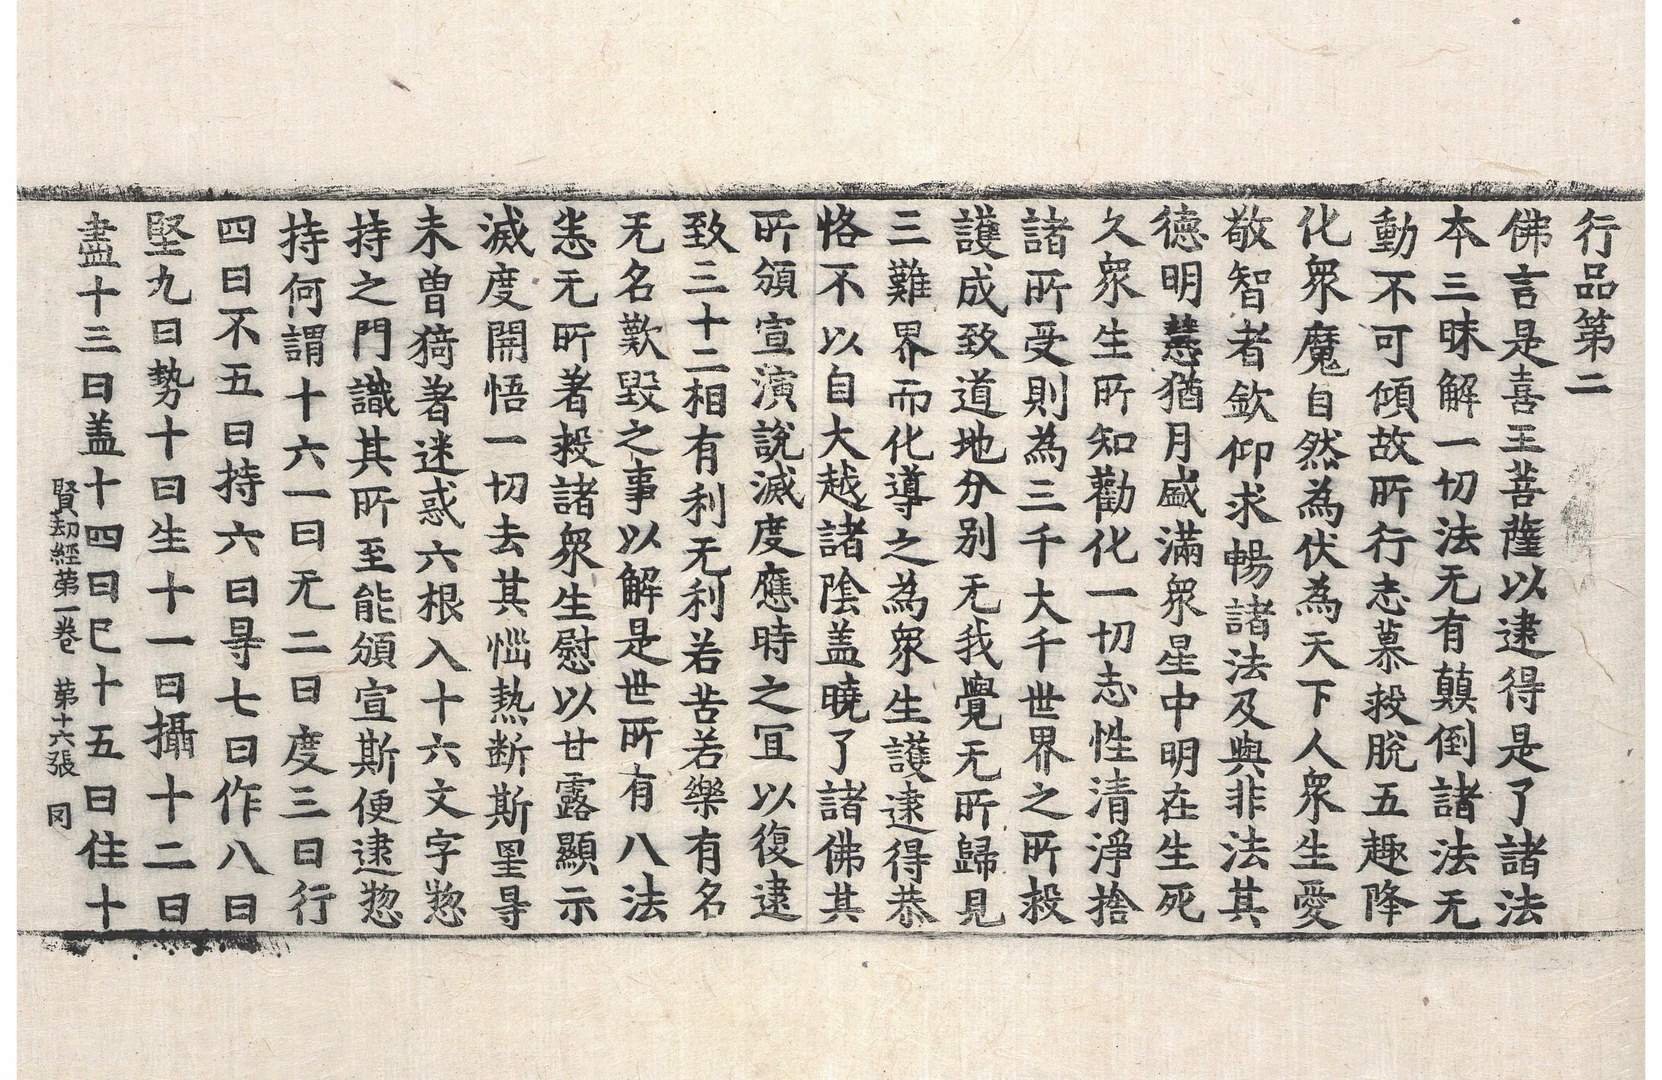 行品第二
佛言是喜王菩薩以逮得是了諸法
本三昧解一切法无有顛倒諸法无
動不可傾故所行志慕投脫五趣降
化衆魔自然為伏為天下人衆生愛
敬智者欽仰求暢諸法及與非法其
德明慧猶月盛滿衆星中明在生死
久衆生所知勸化一切志性清淨捨
諸所受則為三千大千世界之所投
護成致道地分別无我覺无所歸見
三難界而化導之為衆生護逮得恭
恪不以自大越諸陰盖曉了諸佛其
所頒宣演說滅度應時之冝以復逮
致三十二相有利无利若苦若樂有名
无名歎毀之事以解是世所有八法
恙无所著投諸衆生慰以甘露顯示
滅度開悟一切去其惱熱断斯罣㝵
未曾猗著迷惑六根入十六文字惣
持之門識其所至能頒宣斯便逮惣
持何謂十六一曰无二曰度三曰行
四曰不五曰持六曰㝵七曰作八曰
堅九曰勢十曰生十一曰攝十二曰
盡十三曰盖十四曰已十五曰住十
賢刧經第一卷 第十六張 罔